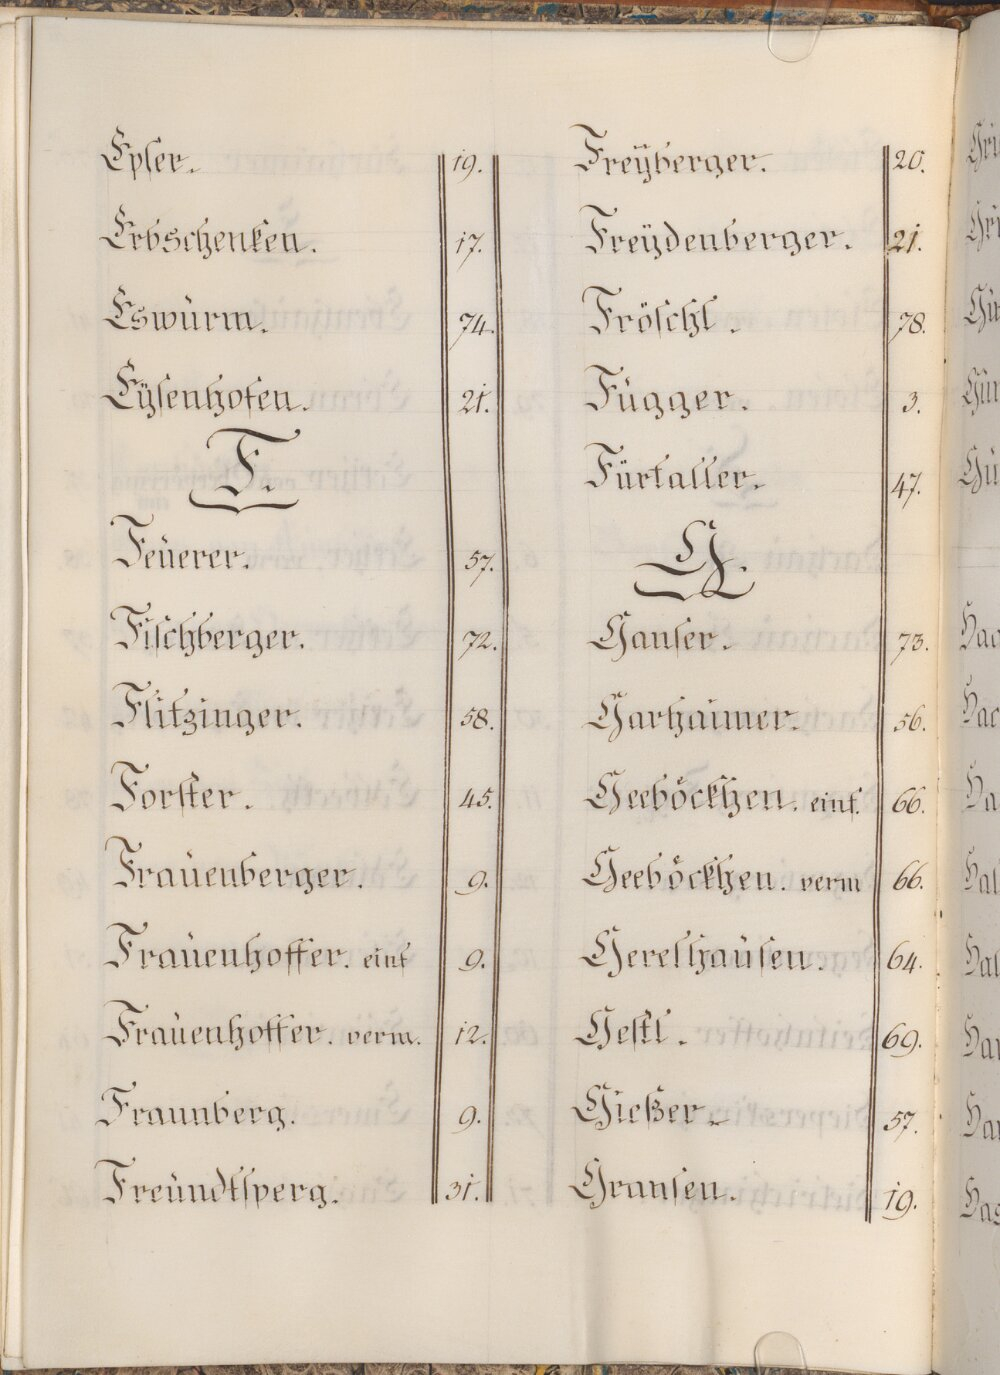 Epser. 19.
Erbschenken. 17.
Eswürm. 74.
Eÿsenhofen. 21.
F.
Feüerer. 57.
Fischberger. 72.
Flitzinger. 58.
Forster. 45.
Fraüenberger. 9.
Fraüenhoffer. eint 9.
Fraüenhoffer. verm. 12.
Fraunberg. 9.
Freündtsperg. 31.
Freÿberger. 20.
Freÿdenberger. 21.
Fröschl. 78.
Függer. 3.
Fürtaller. 47.
G.
Ganser. 73.
Garhaimer. 56.
Geeböckhen. eint. 66.
Geeböckhen. verm 66.
Gerelhaüsen. 64.
Gestl. 69.
Gießer. 57.
Gransen. 19.